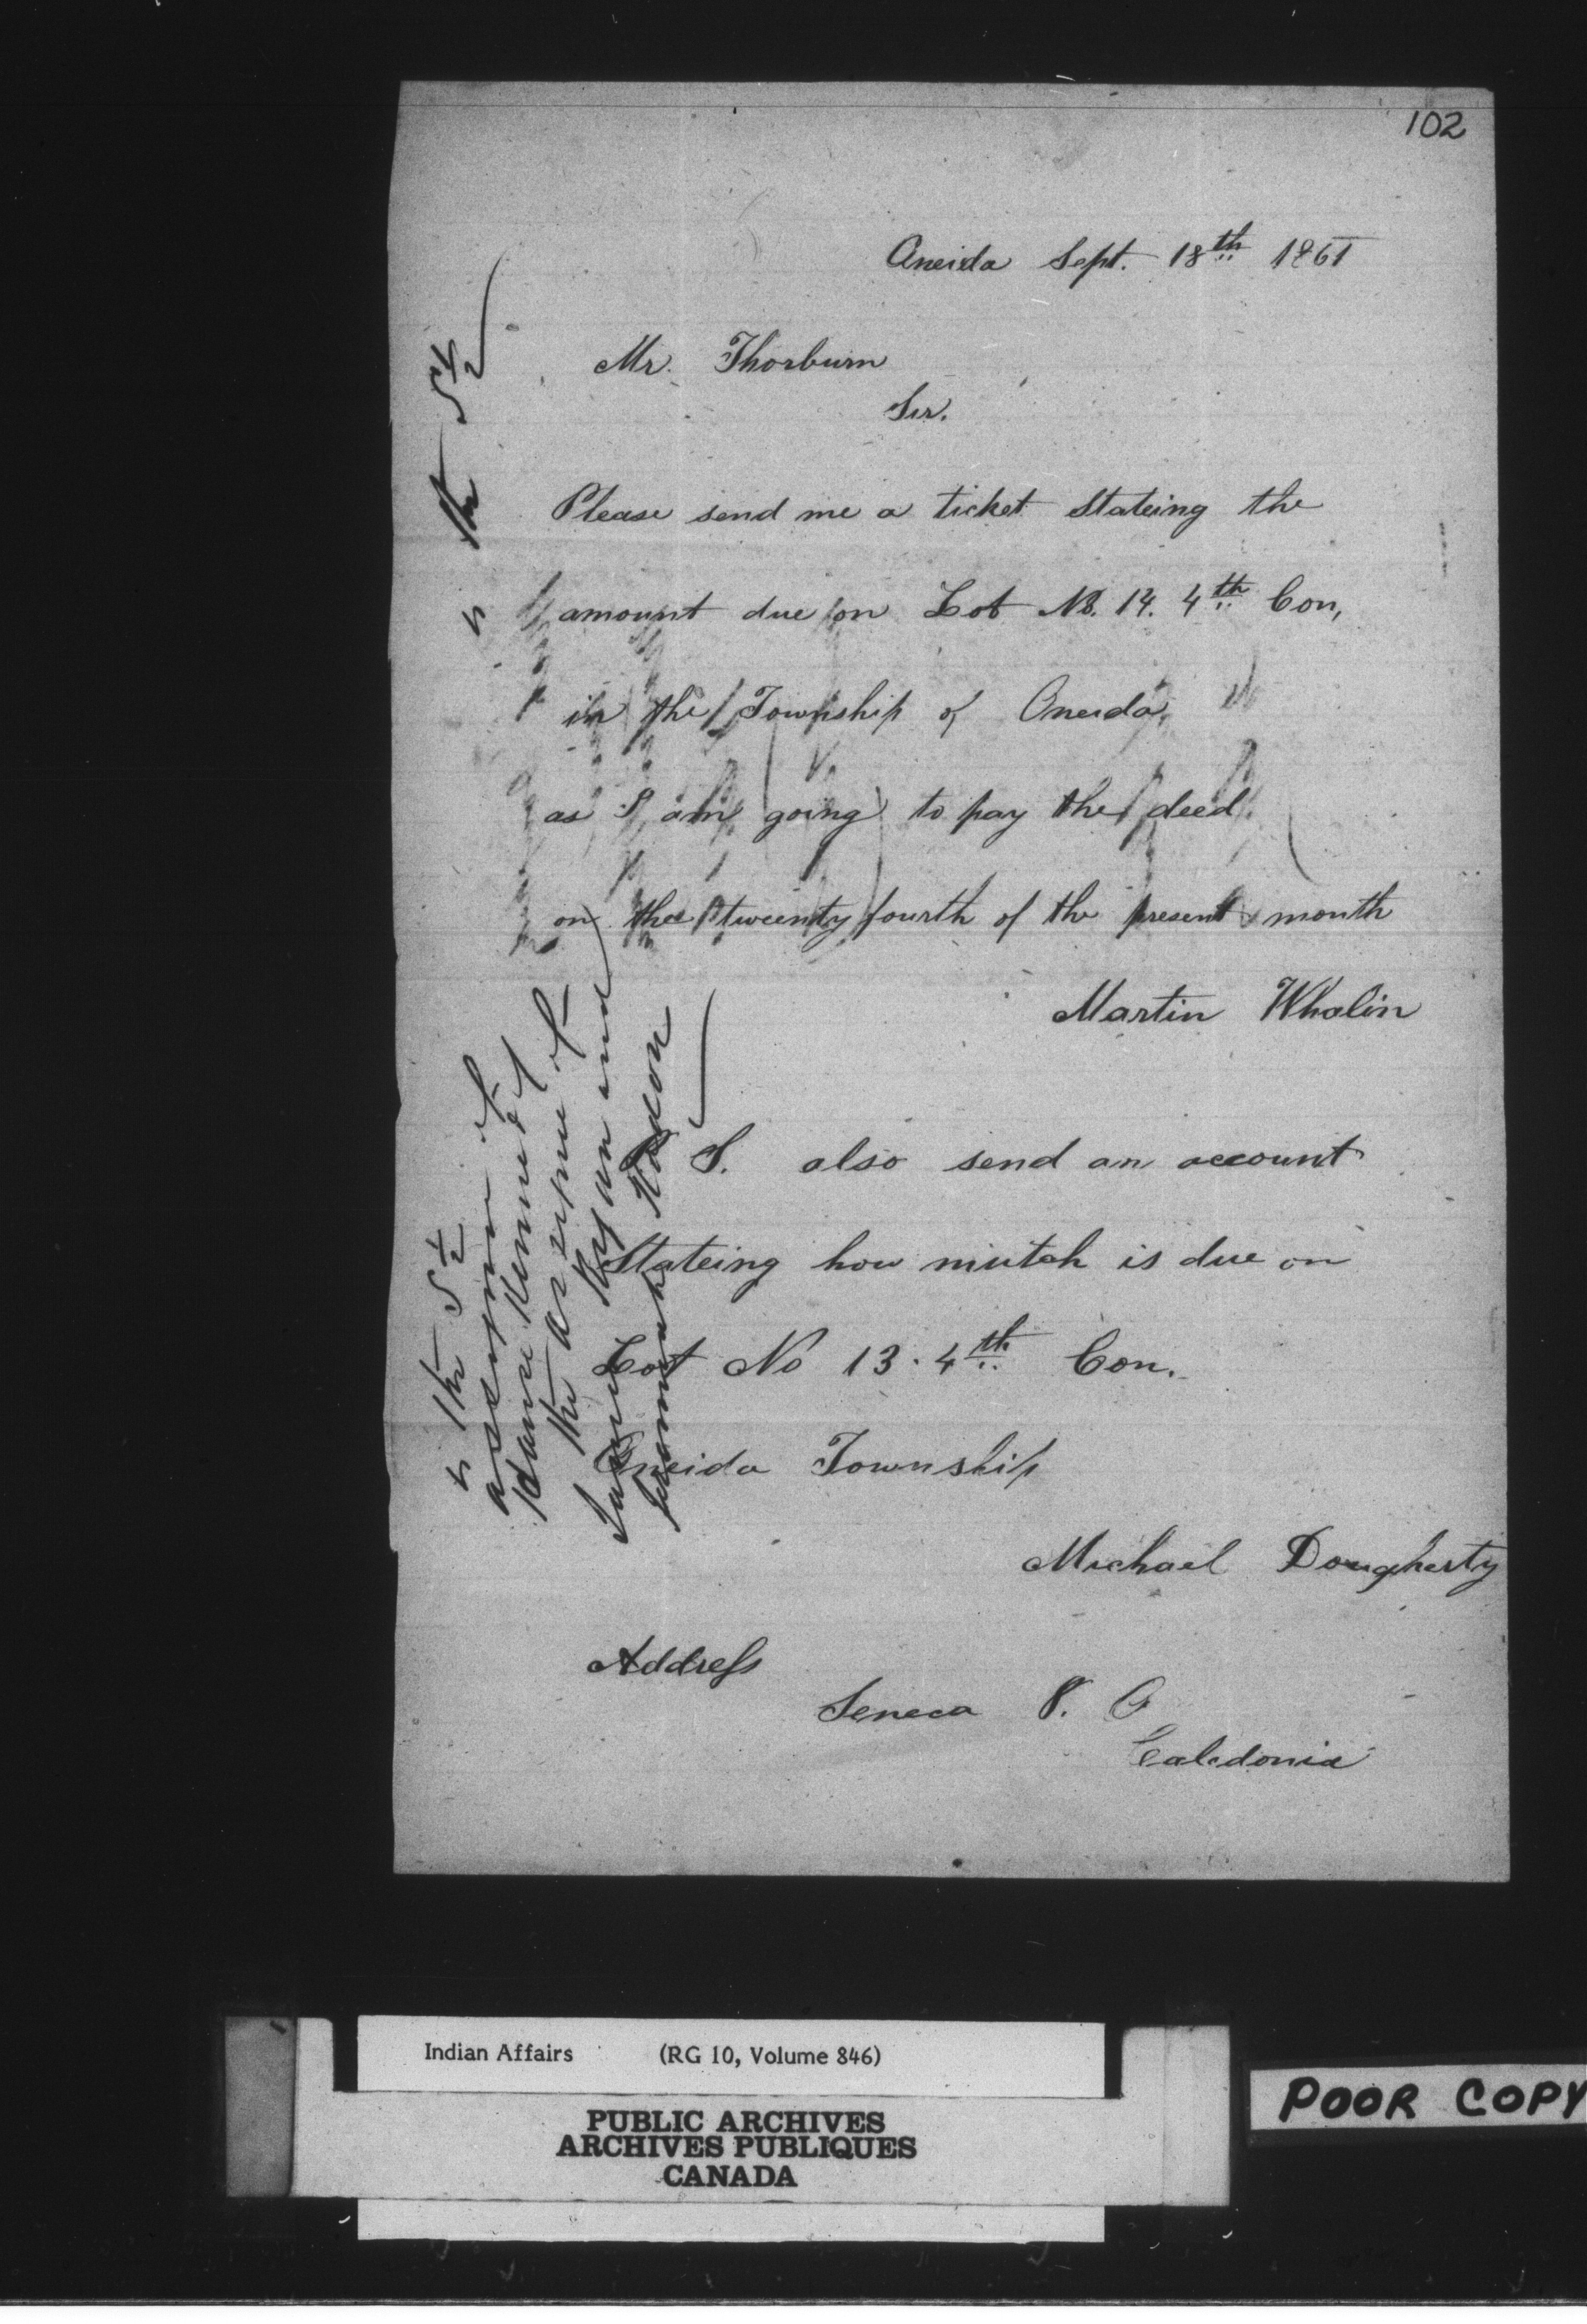 102
Oneida Sept. 18th 1861
Mr. Thorburn
Sir.
Please send me a ticket Stateing the
amount due on Lot No. 14. 4th Con,
in the Township of Oneida,
as I am going to pay the deed
on the tweenty fourth of the present month
Martin Whalin
P S. also send an account
Stateing how mutch is due on
Lot No 13. 4th Con.
Oneida Township
Michael Dougherty
Address
Seneca P. O
Caledonia
the S 1/2
the S 1/2
assignee of
the assignee of
Ryan and
Indian Affairs (RG 10, Volume 846)
PUBLIC ARCHIVES
ARCHIVES PUBLIQUES
CANADA
POOR COPY